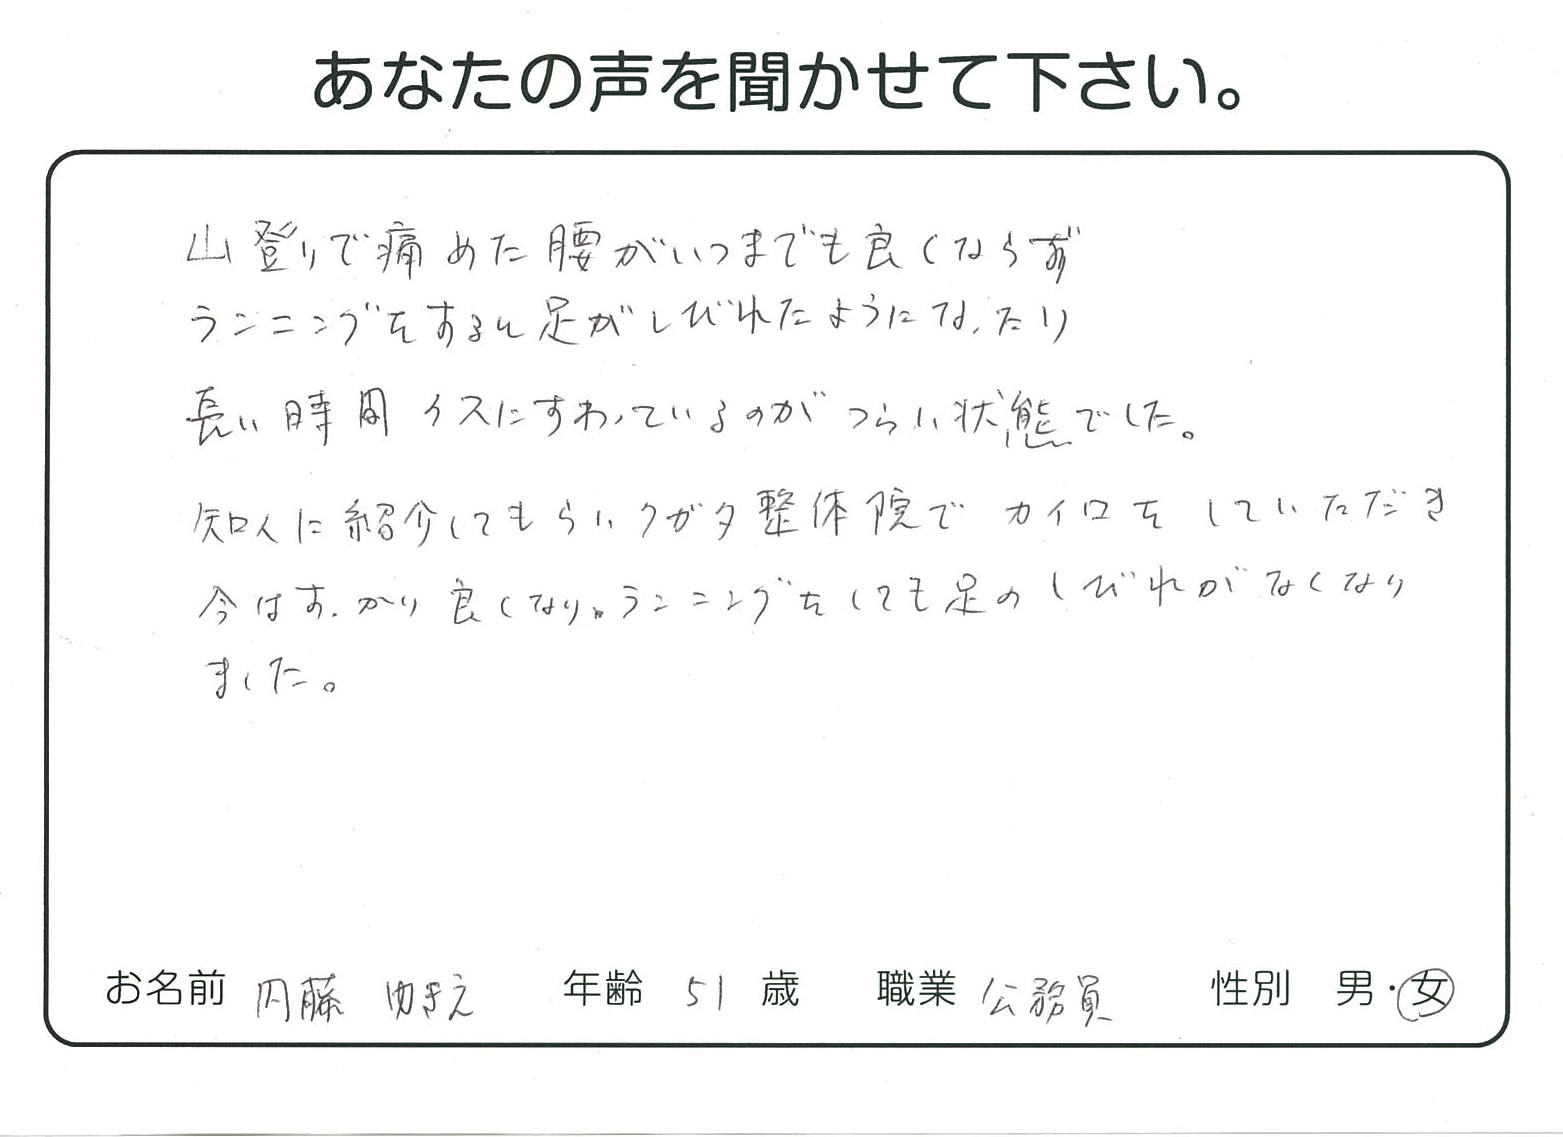 あなたの声を聞かせて下さい。
山登りで痛めた腰がいつまでも良くならず
ランニングをすると足がしびれたようになったり
長い時間イスにすわっているのがつらい状態でした。
知人に紹介してもらいクガタ整体院でカイロをしていただき
今はすっかり良くなり。ランニングをしても足のしびれがなくなり
ました。
お名前 内藤 ゆきえ 年齢 51 歳 職業 公務員 性別 男・女